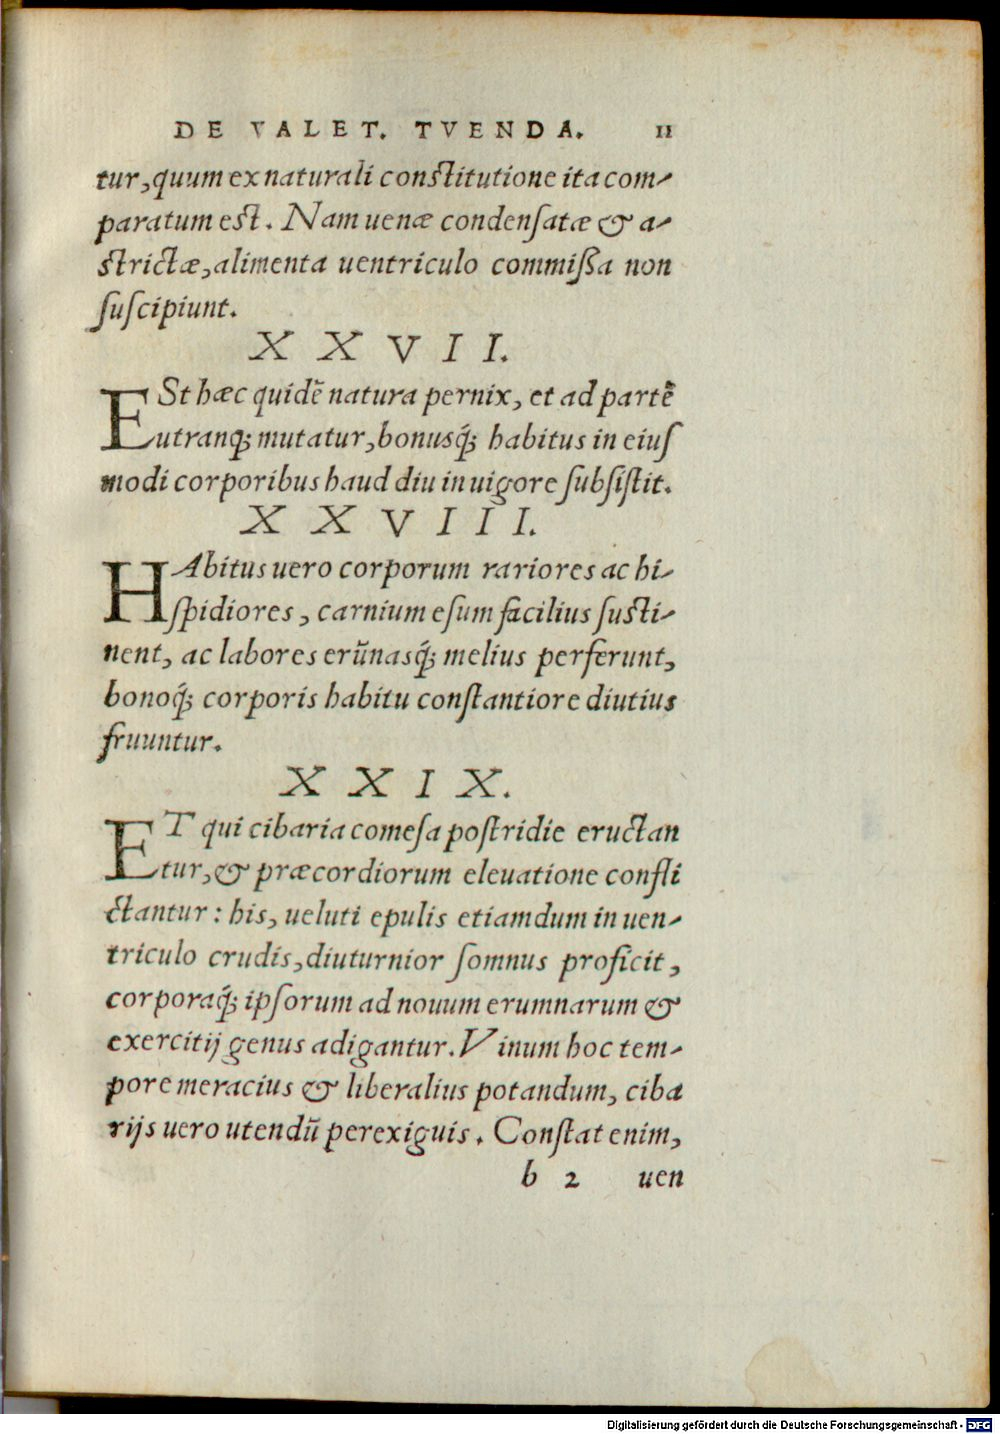 DE VALET. TVENDA. 11
tur, quum ex naturali constitutione ita com-
paratum est. Nam uenæ condensatæ & a-
strictæ, alimenta uentriculo commißa non
suscipiunt.
XXVII.
ESt hæc quidẽ natura pernix, et ad partẽ
utranq; mutatur, bonusq́; habitus in eius
modi corporibus haud diu in uigore subsistit.
XXVIII.
HAbitus uero corporum rariores ac hi-
spidiores, carnium esum facilius susti-
nent, ac labores erũnasq́; melius perferunt,
bonoq́; corporis habitu constantiore diutius
fruuntur.
XXIX.
ET qui cibaria comesa postridie eructan
tur, & præcordiorum eleuatione confli
ctantur: his, ueluti epulis etiamdum in uen-
triculo crudis, diuturnior somnus proficit,
corporaq́; ipsorum ad nouum erumnarum &
exercitij genus adigantur. Vinum hoc tem-
pore meracius & liberalius potandum, ciba
rijs uero utendũ perexiguis. Constat enim,
b 2 uen
Digitalisierung gefördert durch die Deutsche Forschungsgemeinschaft - DFG